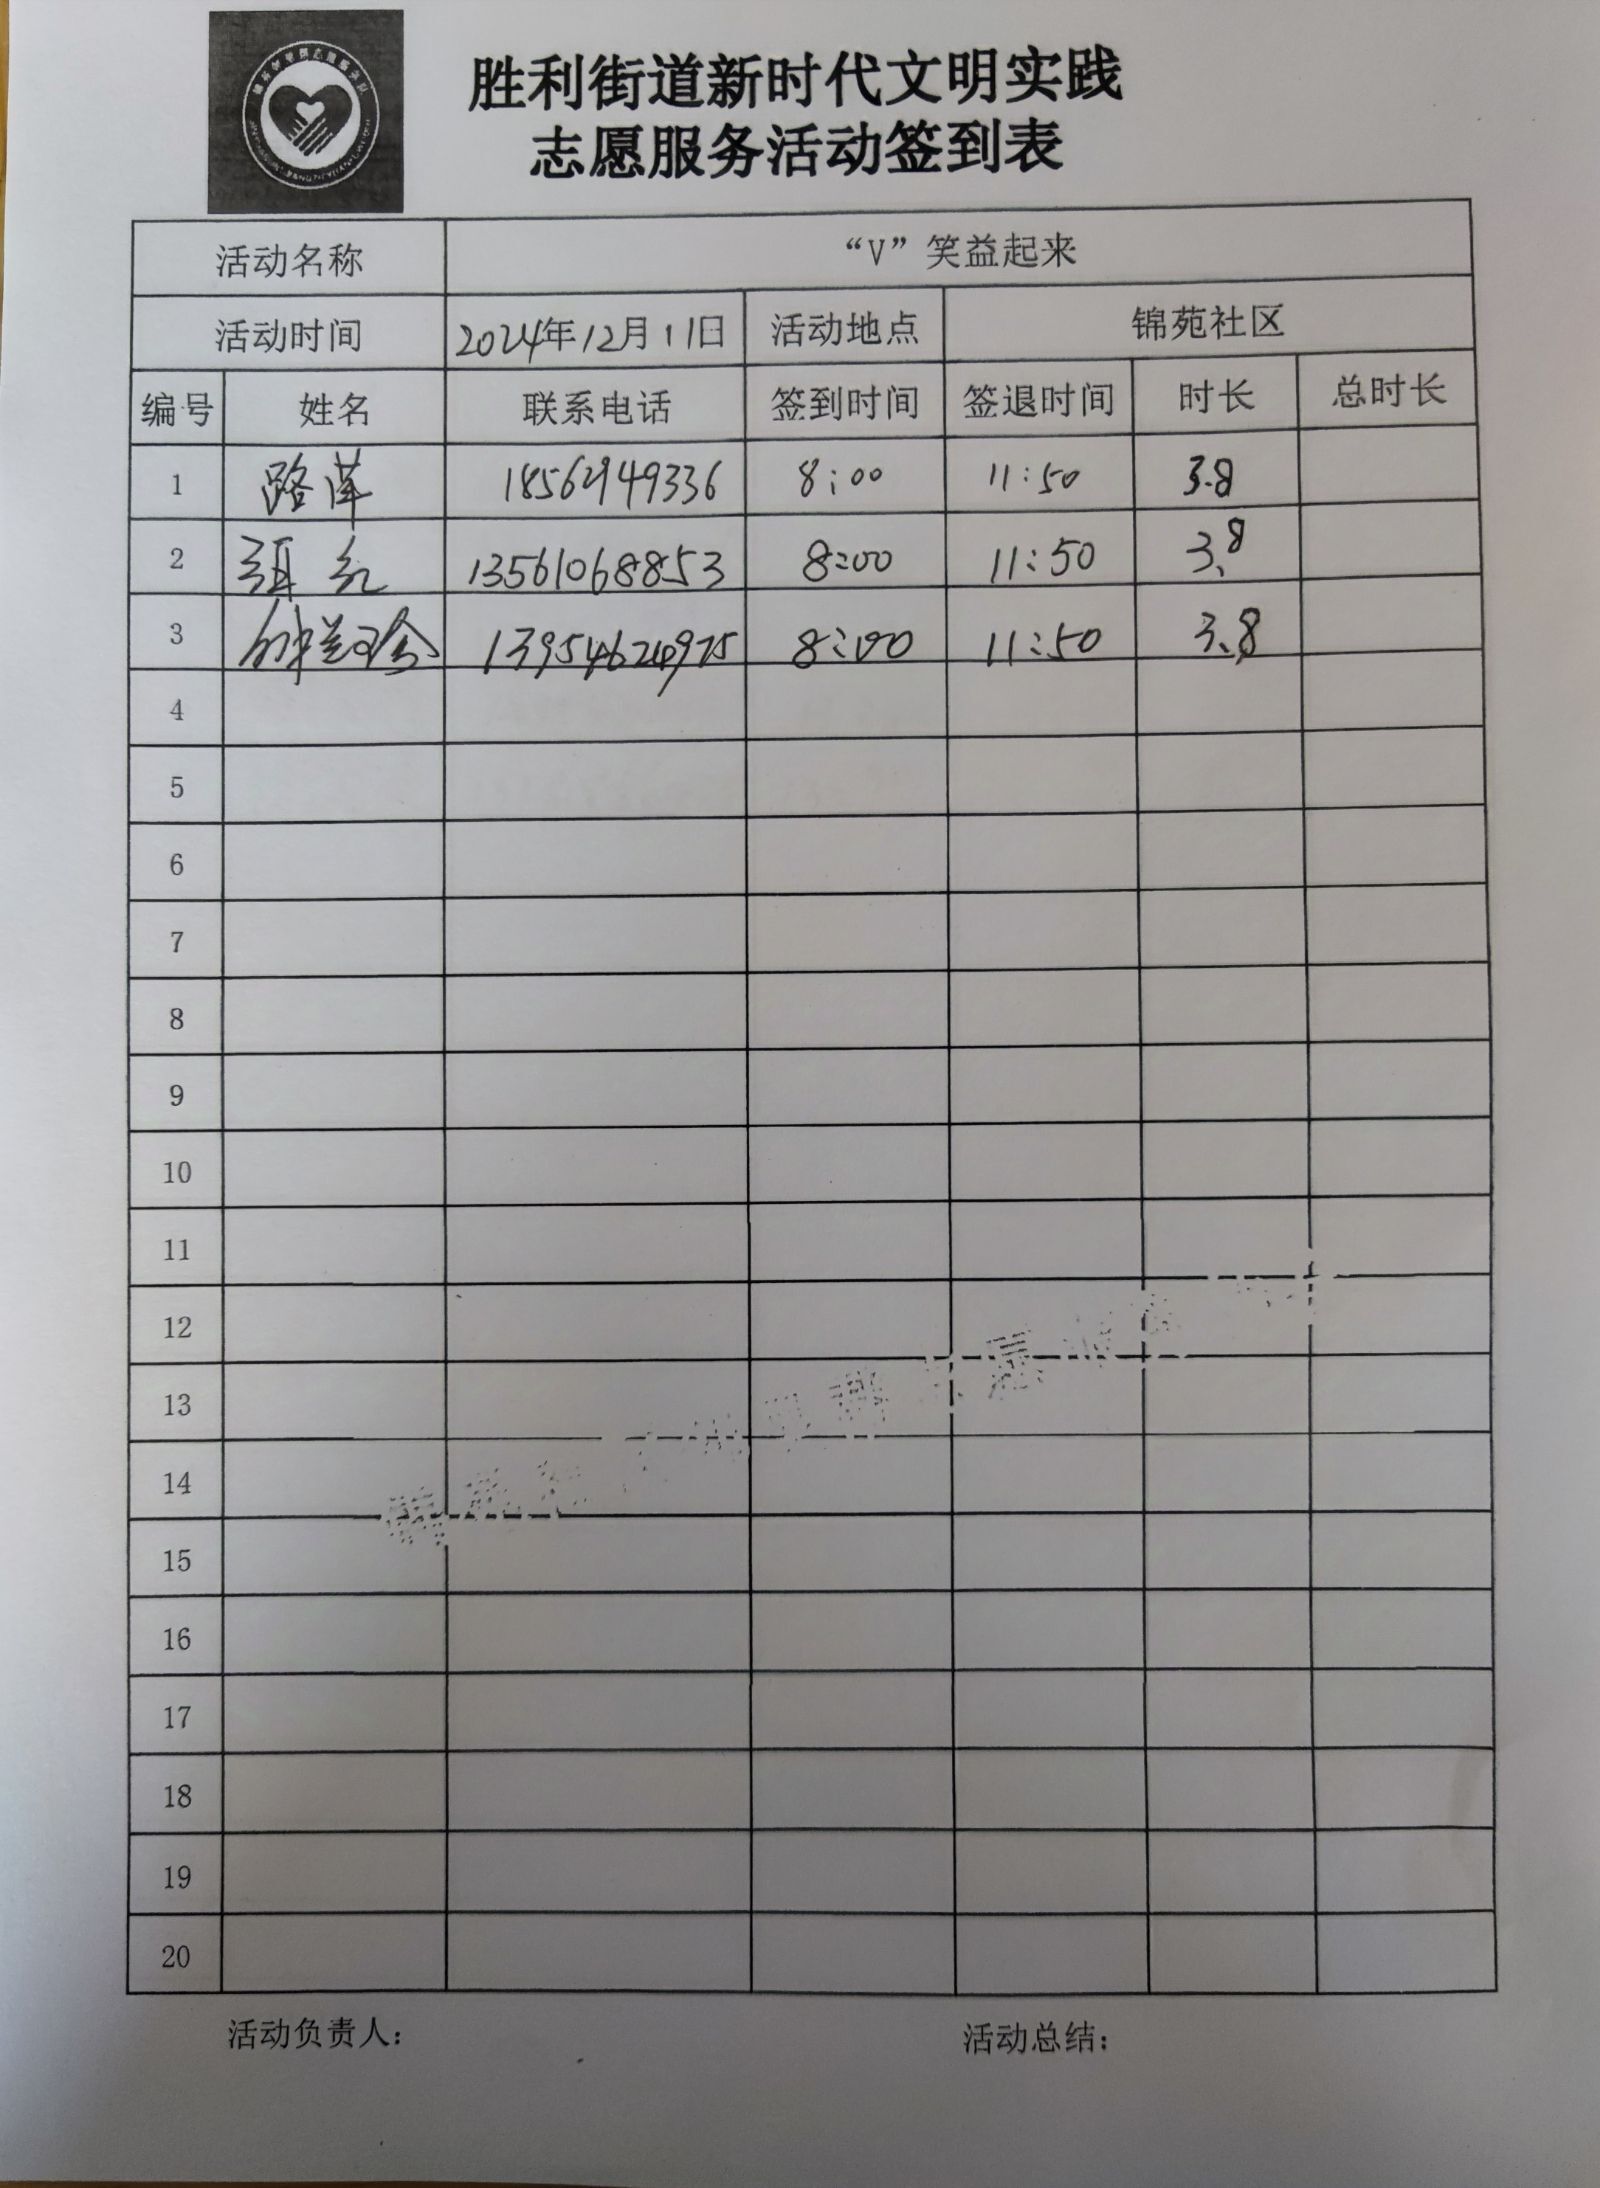 胜利街道新时代文明实践
志愿服务活动签到表
活动名称 “V”笑益起来
活动时间 2024年12月11日 活动地点 锦苑社区
编号 姓名 联系电话 签到时间 签退时间 时长 总时长
1 路 18562949336 8:00 11:50 3.8
2 13561068853 8:00 11:50 3.8
3 13954624975 8:00 11:50 3.8
4
5
6
7
8
9
10
11
12
13
14
15
16
17
18
19
20
活动负责人: 活动总结: